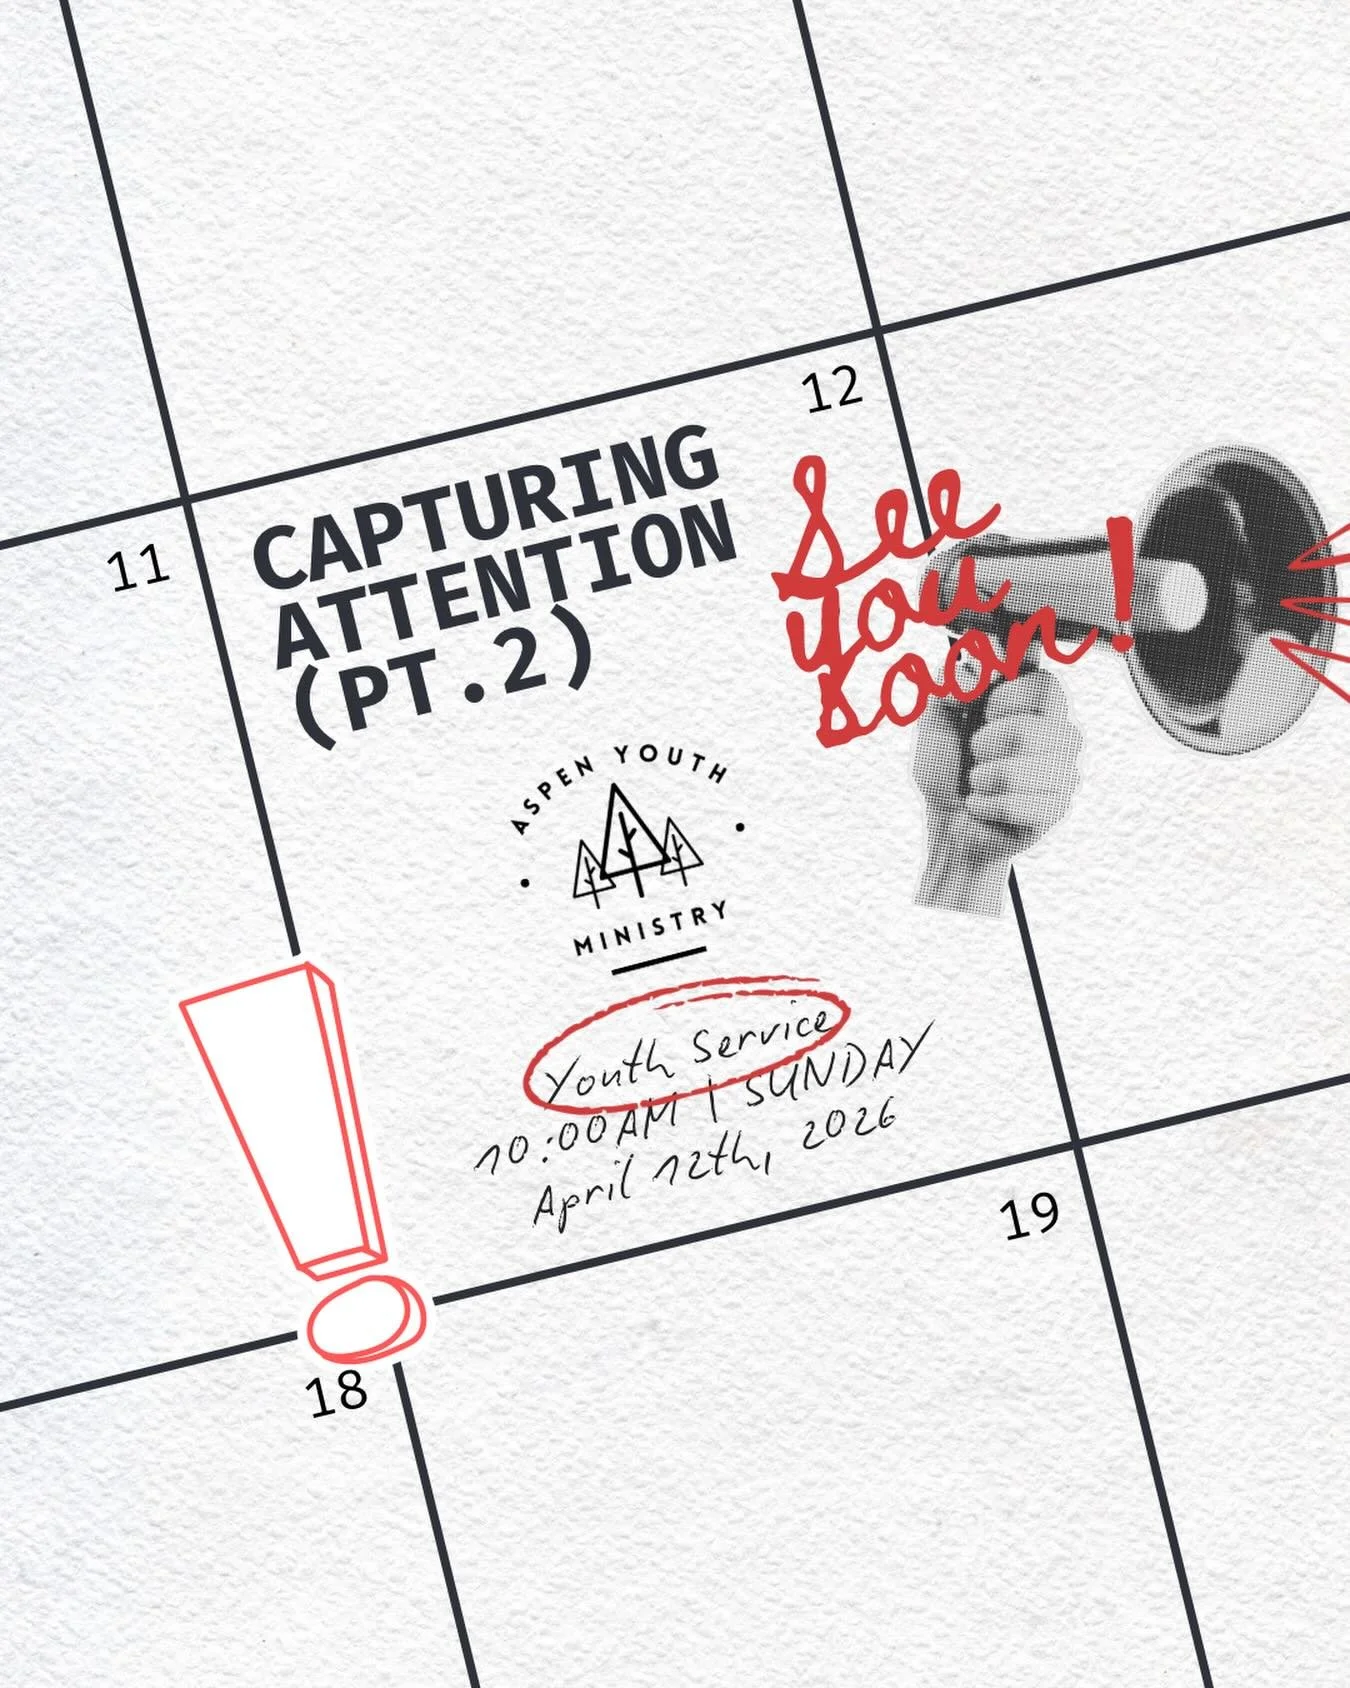 12
11
CAPTURING
ATTENTION
(PT.2)
See
you
soon!
ASPEN YOUTH
MINISTRY
Youth Service
10:00AM | SUNDAY
April 12th, 2026
19
18